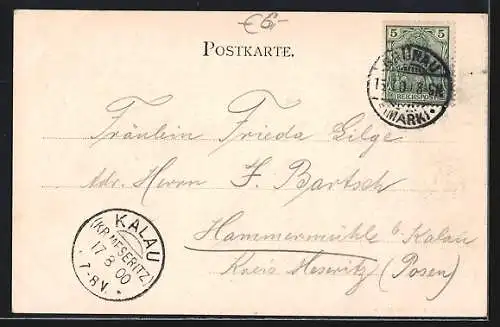 €6,-
POSTKARTE.
5 5
REICHSPOST
(NMARK)
Fräulein Frieda Gilge
Adr. Herrn F. Bartsch
Hammermühle b. Kalau
Kreis Meseritz (Posen)
KALAU
(KR. MESERITZ)
17 8 00
7-8V.